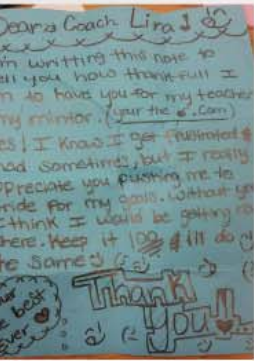 Dear Coach Lira!
I'm writting this note to
tell you how thankfull I
am to have you for my teacher
my mintor. (your the .Com)
yes! I Know I get frustrated &
mad sometimes, but I really
appreciate you pushing me to
stride for my goals. Without you
I think I would be getting no
there. Keep it 100 & ill do
the same
Thank
you!!
your
the best
ever